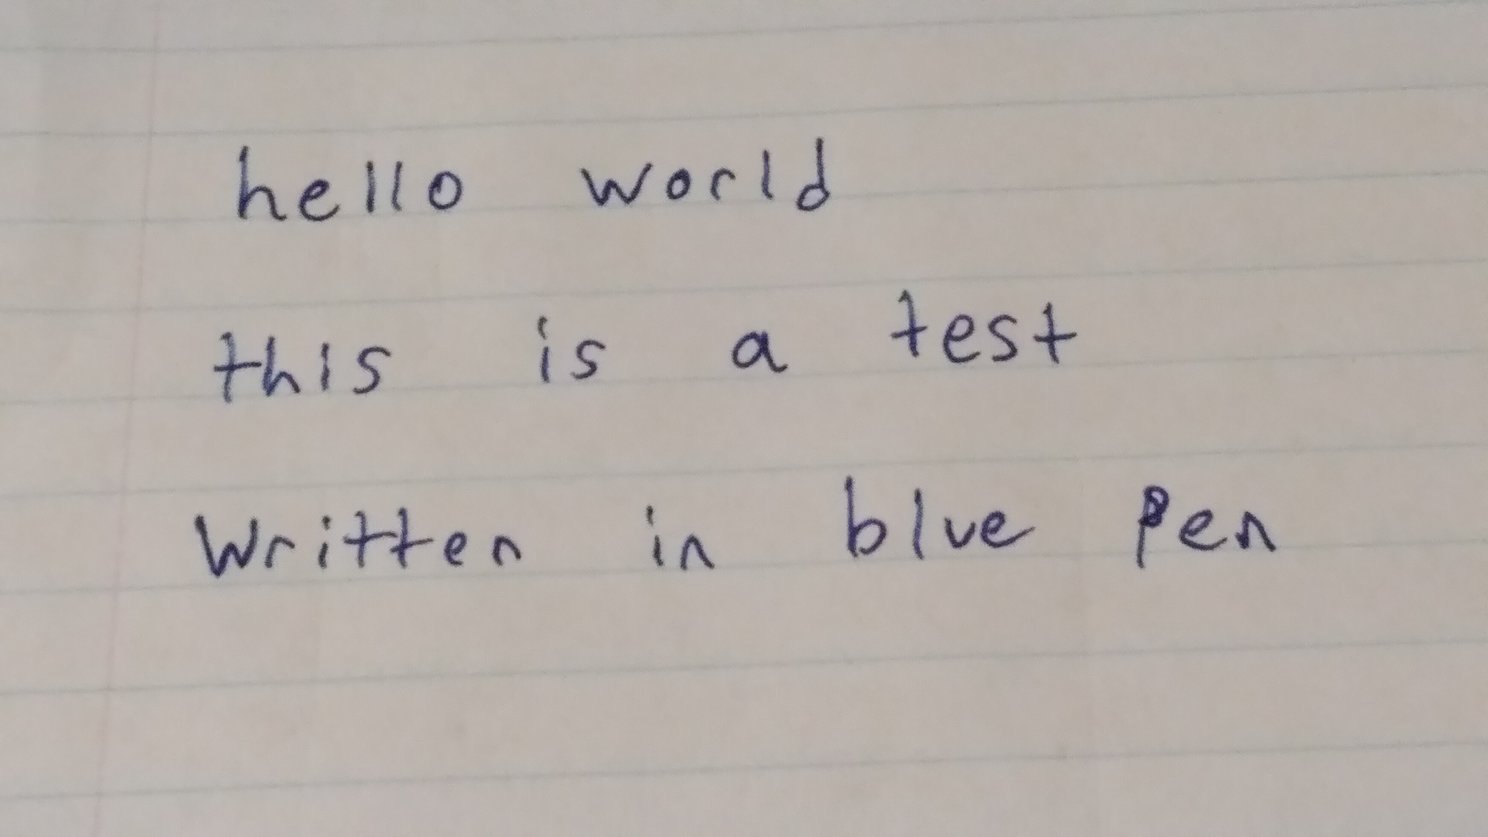 hello world
this is a test
Written in blue pen